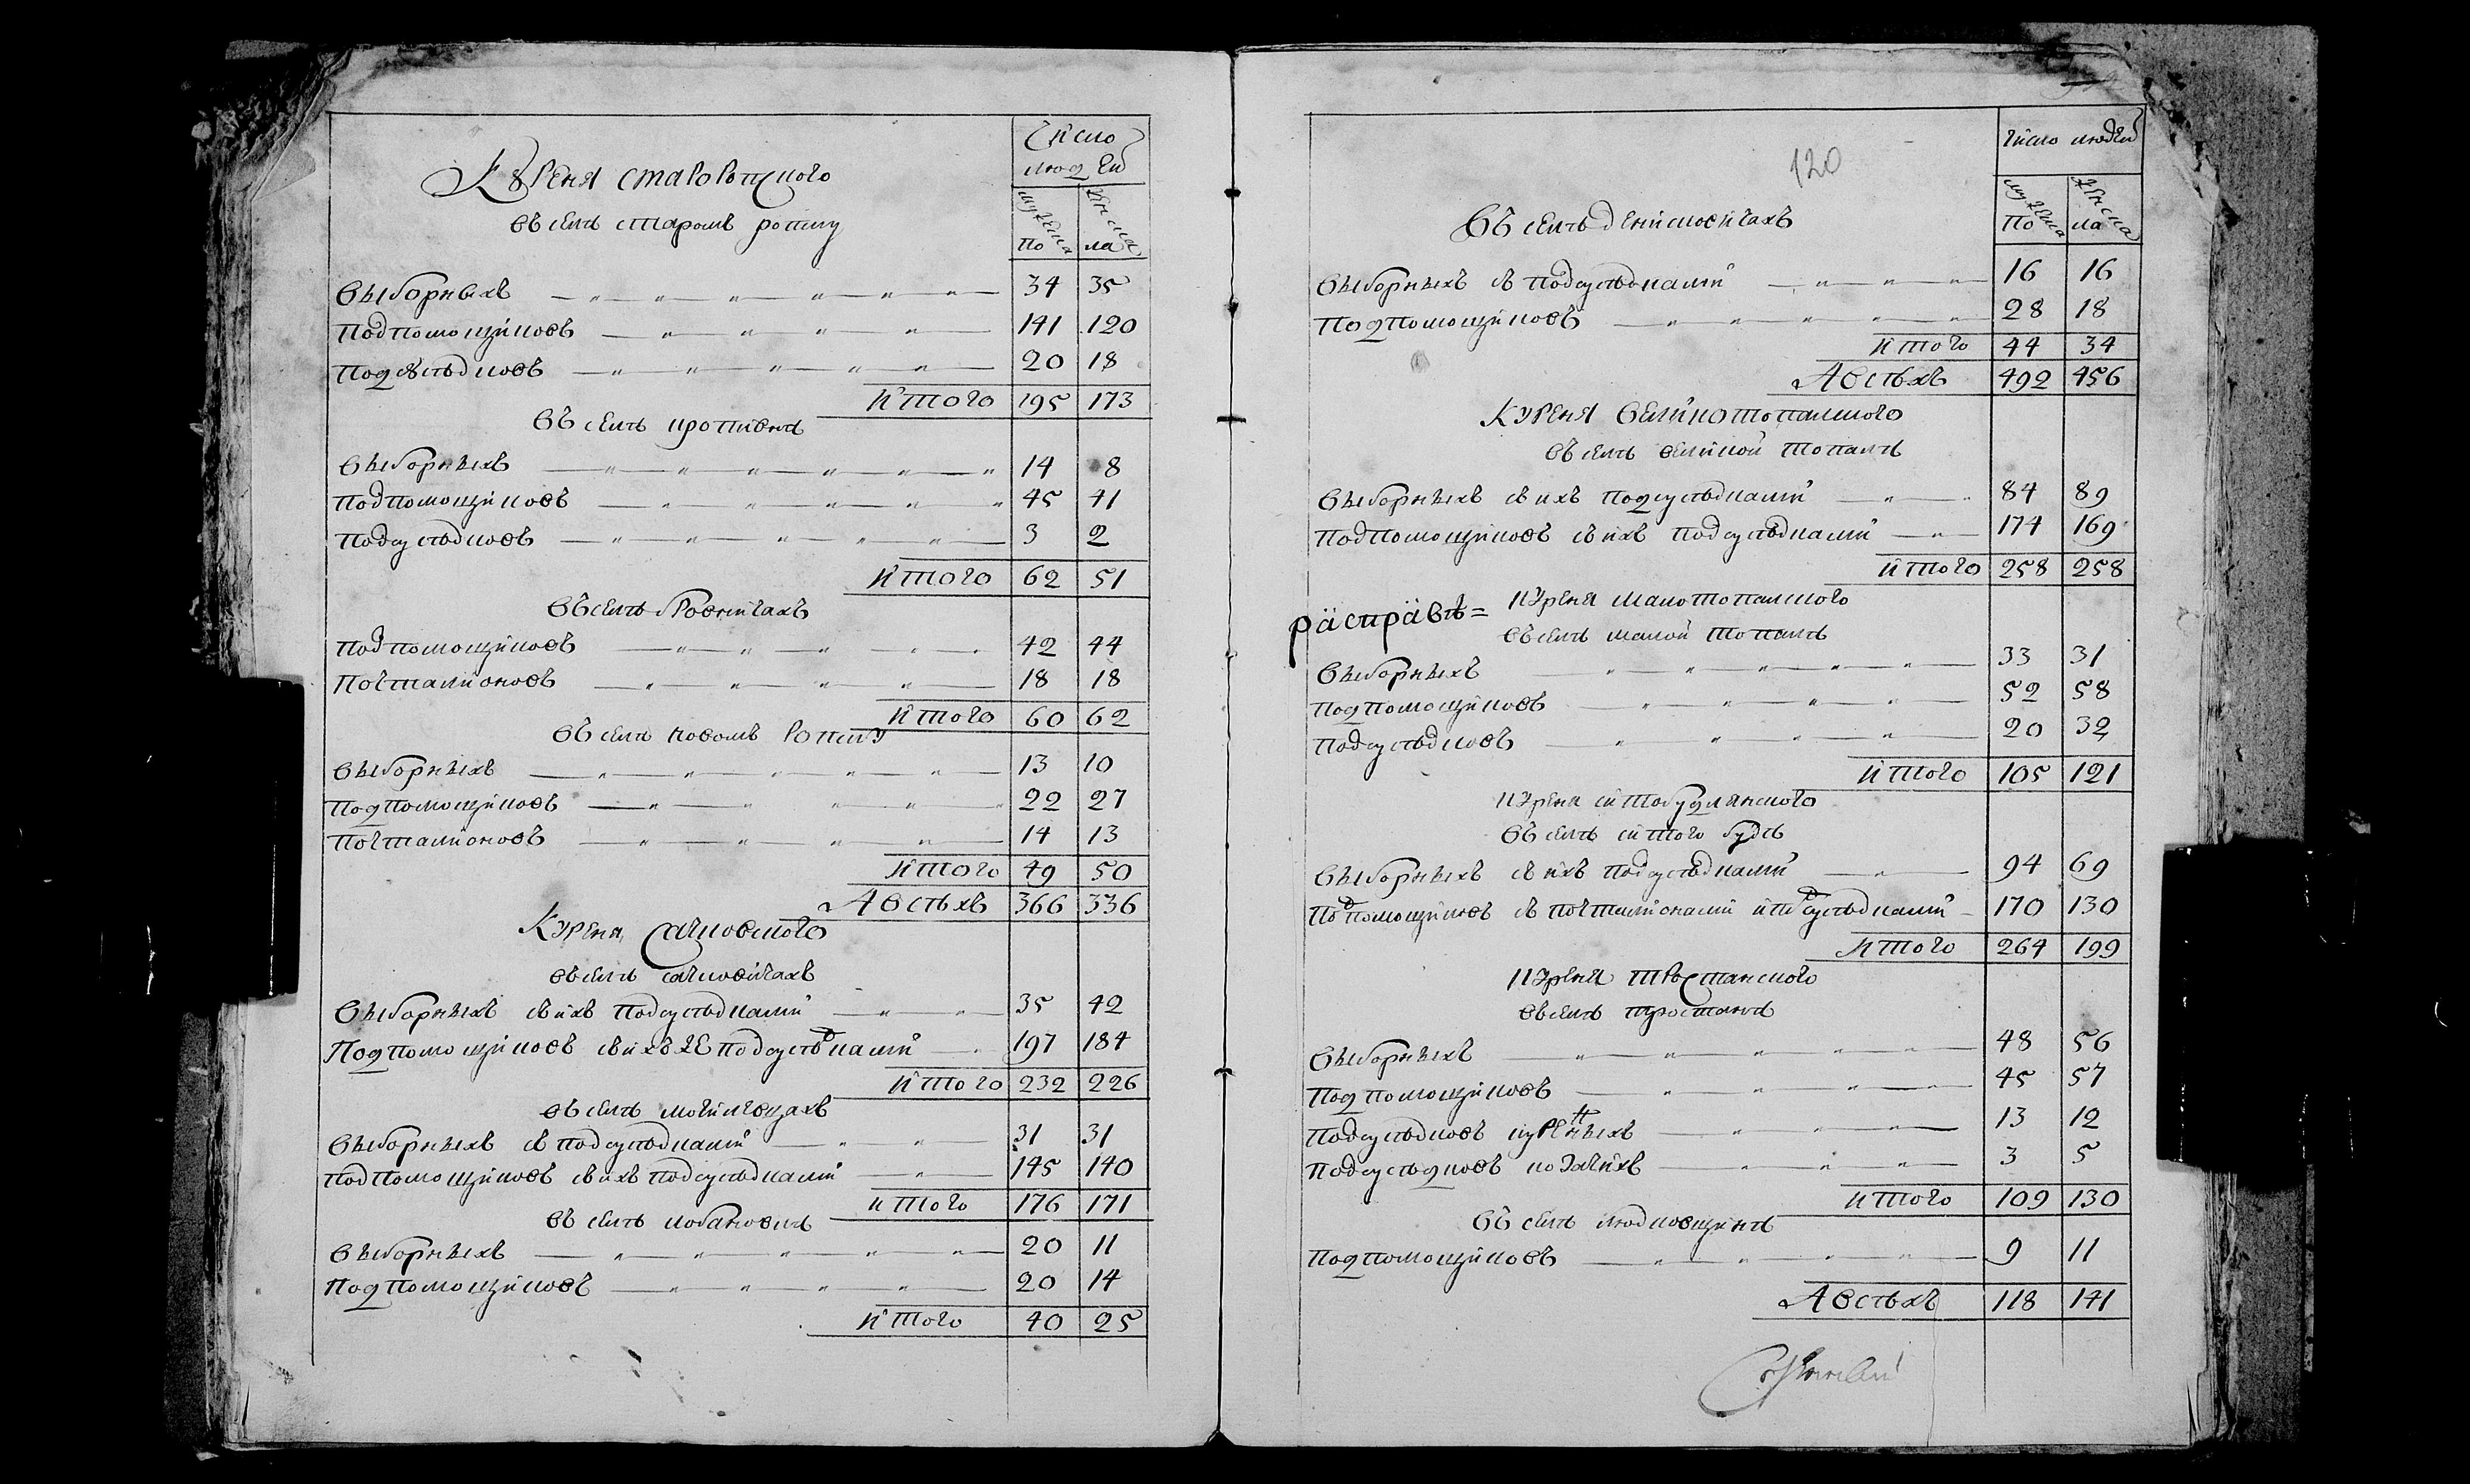 Число
людей
мужеска женска
по ла
Курѣня старо Ропского
въ селѣ старомъ ропску
выборныхъ 34 35
Подпомощиковъ 141 120
Подсусѣдковъ 20 18
Итого 195 173
въ селѣ кропивнѣ
выборныхъ 14 8
Подпомощиковъ 45 41
Подсусѣдковъ 3 2
Итого 62 51
въ селѣ бровничахъ
Подпомощиковъ 42 44
Почталионовъ 18 18
Итого 60 62
въ селѣ новомъ Ропску
выборныхъ 13 10
Подпомощиковъ 22 27
Почталионовъ 14 13
Итого 49 50
А всѣхъ 366 336
Куреня сачковского
въ селѣ сачковичахъ
выборныхъ съ ихъ подсусѣдками 35 42
Подпомощиковъ съ ихъ же подсусѣдками 197 184
Итого 232 226
въ селѣ могилевцахъ
выборныхъ съ подсусѣдками 31 31
Подпомощиковъ съ ихъ подсусѣдками 145 140
Итого 176 171
въ селѣ лобановкѣ
выборныхъ 20 11
Подпомощиковъ 20 14
Итого 40 25
120
Число людей
мужеска женска
по ла
Въ селѣ денисковичахъ
выборныхъ съ подсусѣдками 16 16
Подпомощиковъ 28 18
Итого 44 34
А всѣхъ 492 456
Куреня великотопалского
въ селѣ великой топалѣ
выборныхъ съ ихъ подсусѣдками 84 89
Подпомощиковъ съ ихъ подсусѣдками 174 169
Итого 258 258
распрàвѣ= куреня малотопалского
въ селѣ малой топалѣ
выборныхъ 33 31
Подпомощиковъ 52 58
Подсусѣдковъ 20 32
Итого 105 121
куреня ситобудлянского
въ селѣ ситого будѣ
выборныхъ съ ихъ подсусѣдками 94 69
Подпомощиковъ съ почталионами и подсусѣдками 170 130
Итого 264 199
куреня тростанского
въ селѣ тростанѣ
выборныхъ 48 56
Подпомощиковъ 45 57
Подсусѣдковъ куренныхъ 13 12
Подсусѣдковъ козачихъ 3 5
Итого 109 130
въ селѣ людковщинѣ
Подпомощиковъ 9 11
А всѣхъ 118 141